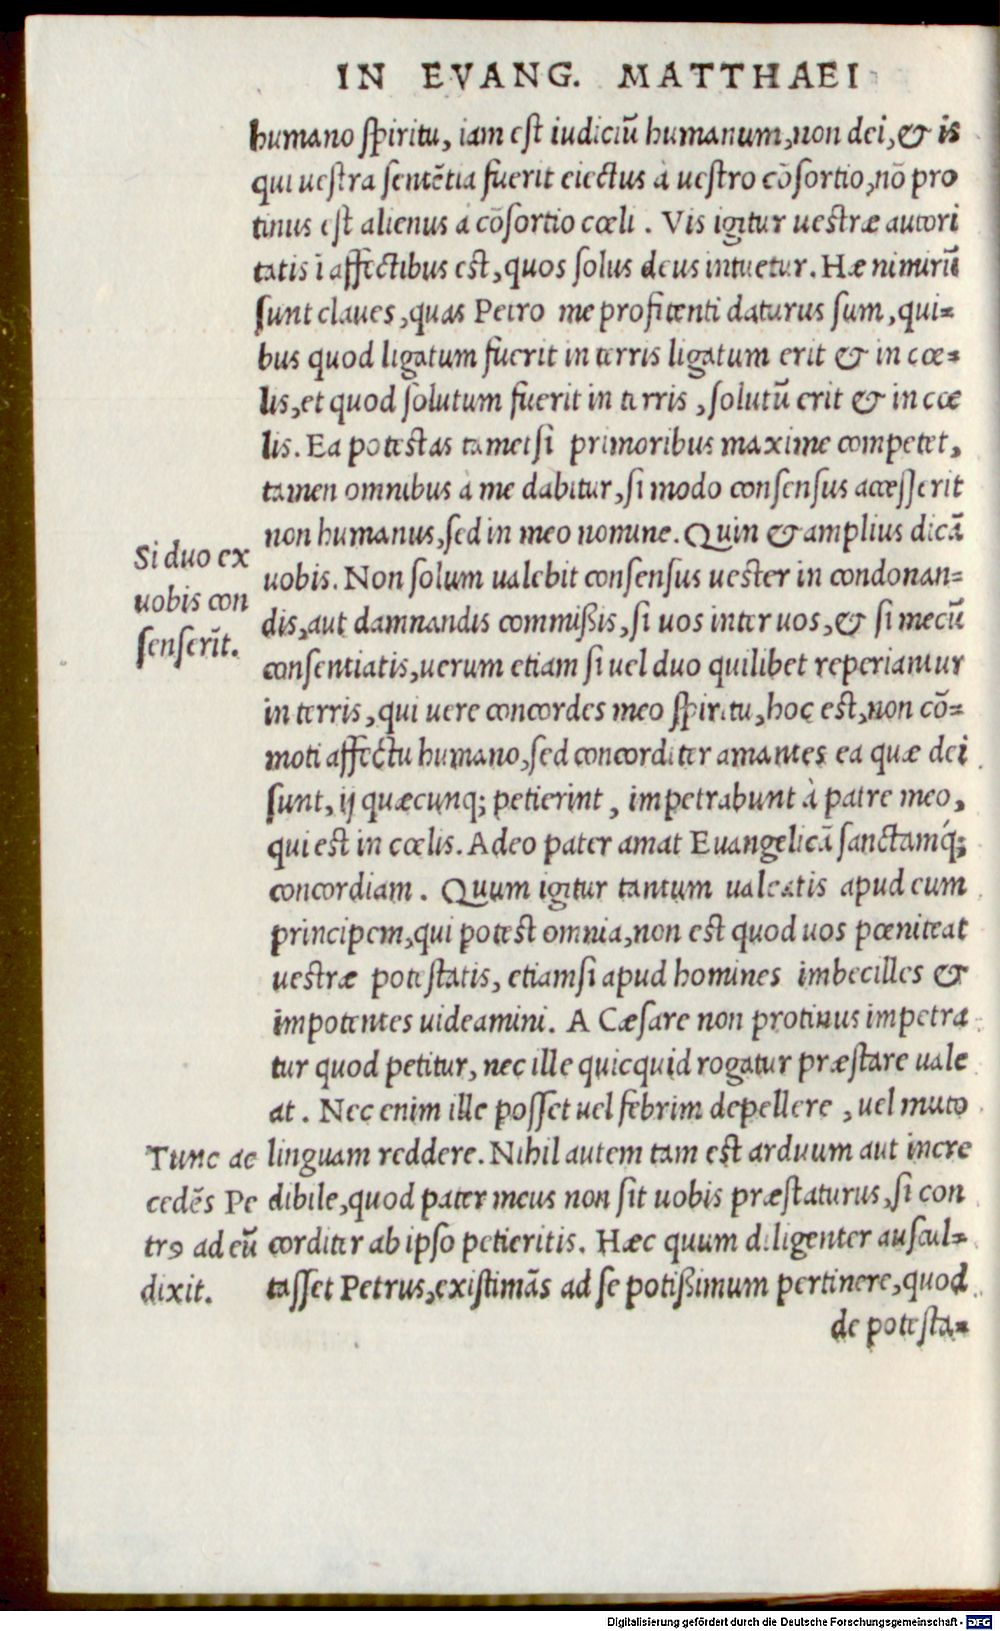 IN EVANG. MATTHAEI
humano spiritu, iam est iudiciũ humanum, non dei, & is
qui uestra sentẽtia fuerit eiectus à uestro cõsortio, nõ pro
tinus est alienus à cõsortio cœli. Vis igitur uestræ autori
tatis ĩ affectibus est, quos solus deus intuetur. Hæ nimirũ
sunt claues, quas Petro me profitenti daturus sum, qui=
bus quod ligatum fuerit in terris ligatum erit & in cœ=
lis, et quod solutum fuerit in terris, solutũ erit & in cœ
lis. Ea potestas tametsi primoribus maxime competet,
tamen omnibus à me dabitur, si modo consensus accesserit
non humanus, sed in meo nomine. Quin & amplius dicã
Si duo ex
uobis con
senserĩt.
uobis. Non solum ualebit consensus uester in condonan=
dis, aut damnandis commißis, si uos inter uos, & si mecũ
consentiatis, uerum etiam si uel duo quilibet reperiantur
in terris, qui uere concordes meo spiritu, hoc est, non cõ=
moti affectu humano, sed concorditer amantes ea quæ dei
sunt, ij quæcunq; petierint, impetrabunt à patre meo,
qui est in cœlis. Adeo pater amat Euangelicã sanctamq́;
concordiam. Quum igitur tantum ualeatis apud eum
principem, qui potest omnia, non est quod uos pœniteat
uestræ potestatis, etiamsi apud homines imbecilles &
impotentes uideamini. A Cæsare non protinus impetra
tur quod petitur, nec ille quicquid rogatur præstare uale
at. Nec enim ille posset uel febrim depellere, uel muto
Tunc ac
cedẽs Pe
trꝰ ad eũ
dixit.
linguam reddere. Nihil autem tam est arduum aut incre
dibile, quod pater meus non sit uobis præstaturus, si con
corditer ab ipso petieritis. Hæc quum diligenter auscul=
tasset Petrus, existimãs ad se potißimum pertinere, quod
de potesta=
Digitalisierung gefördert durch die Deutsche Forschungsgemeinschaft - DFG